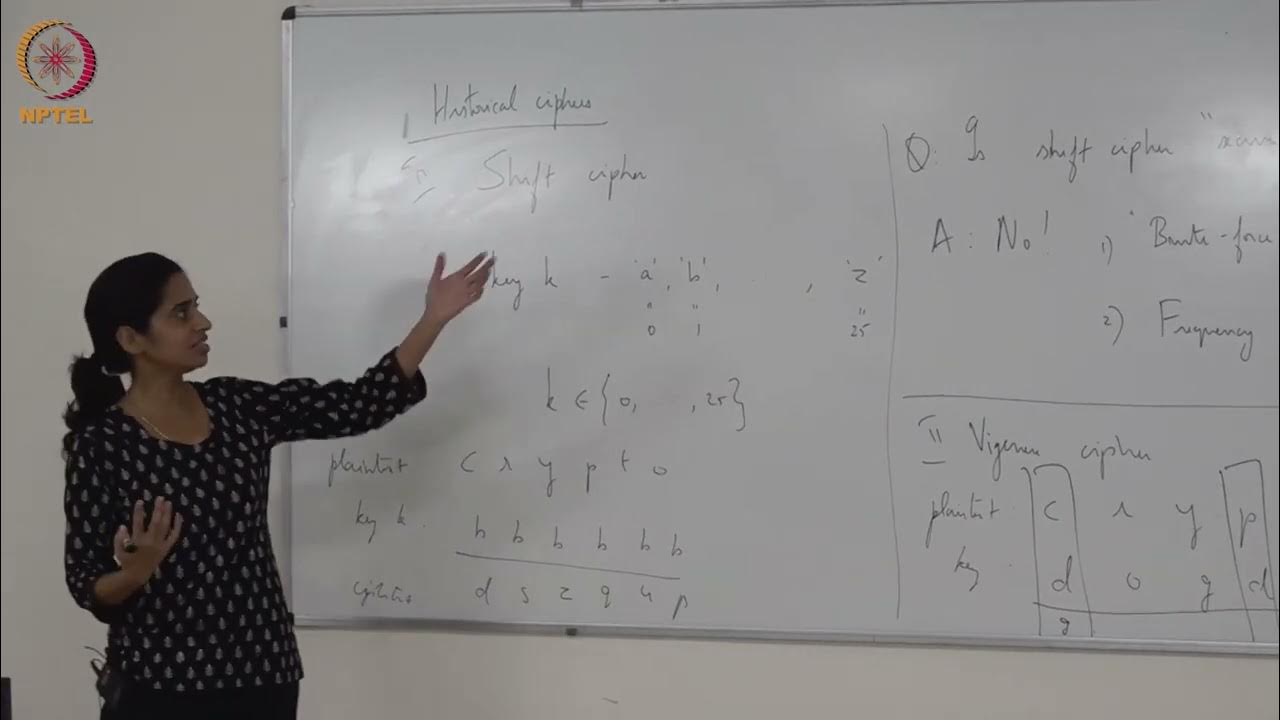 NPTEL
Historical ciphers
I Shift cipher
key k - 'a', 'b', . . , 'z'
" " "
0 1 25
k ∈ {0, , 25}
plaintext c r y p t o
key k. b b b b b b
d s z q u p
Q: Is shift cipher "
A: No! 1) Brute-force
2) Frequency
II Vigenere cipher
plaintext c r y p
key d o g d
g